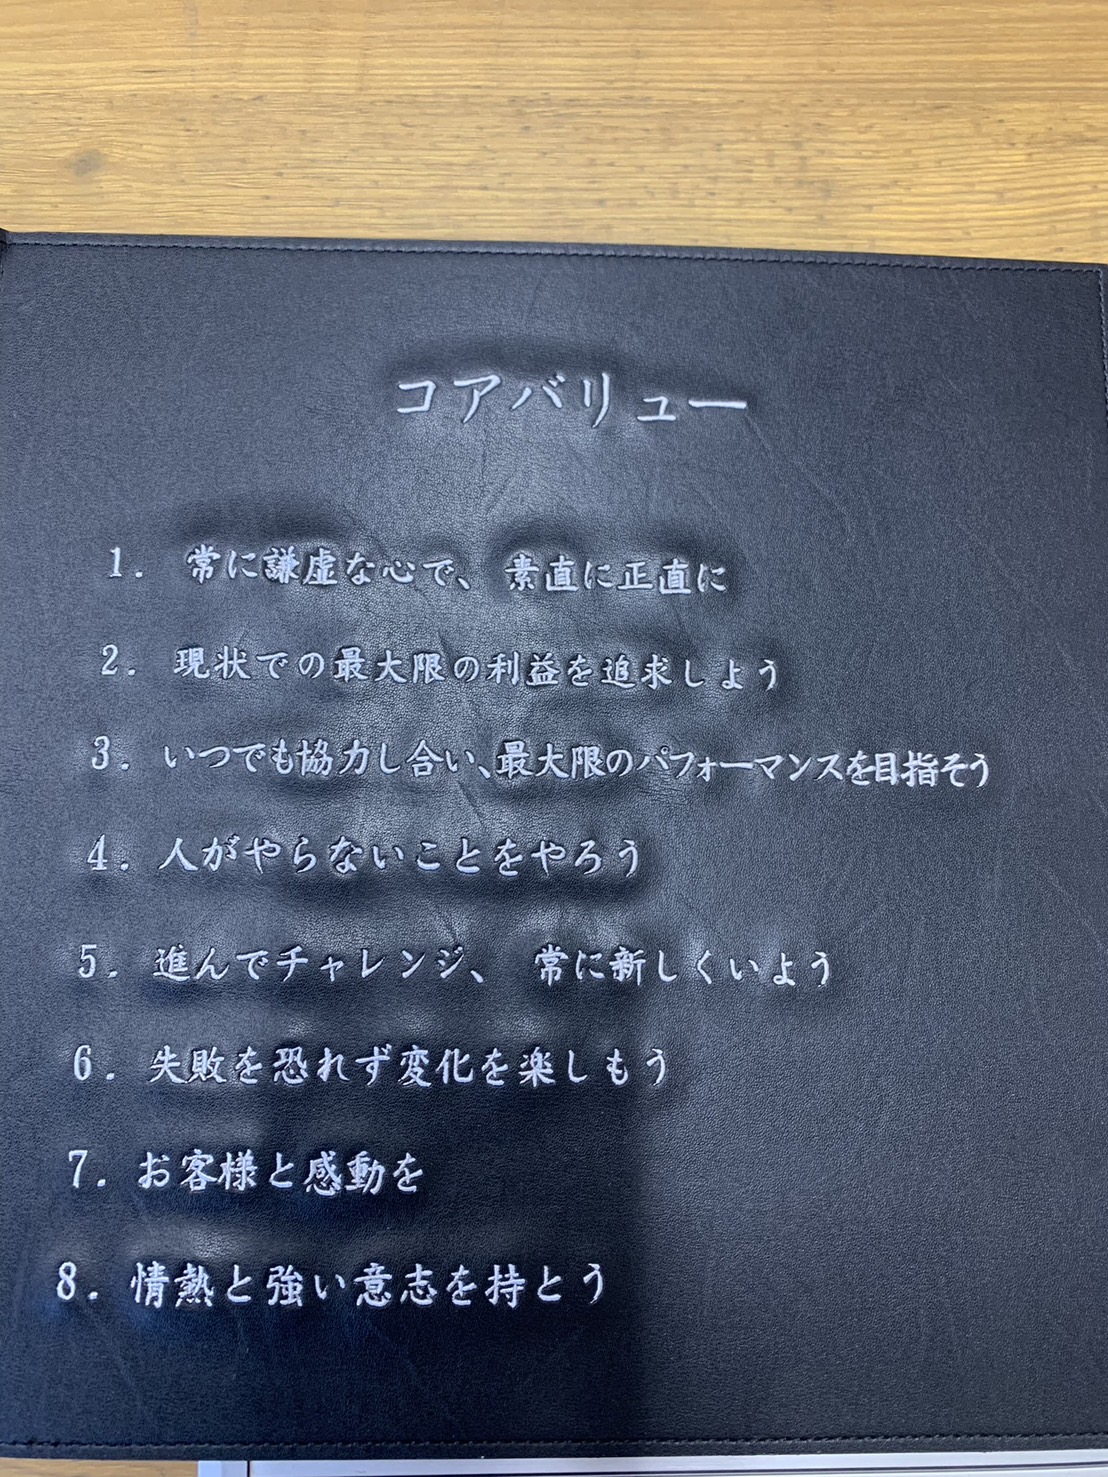 コアバリュー
1. 常に謙虚な心で、 素直に正直に
2. 現状での最大限の利益を追求しよう
3. いつでも協力し合い、最大限のパフォーマンスを目指そう
4. 人がやらないことをやろう
5. 進んでチャレンジ、 常に新しくいよう
6. 失敗を恐れず変化を楽しもう
7. お客様と感動を
8. 情熱と強い意志を持とう